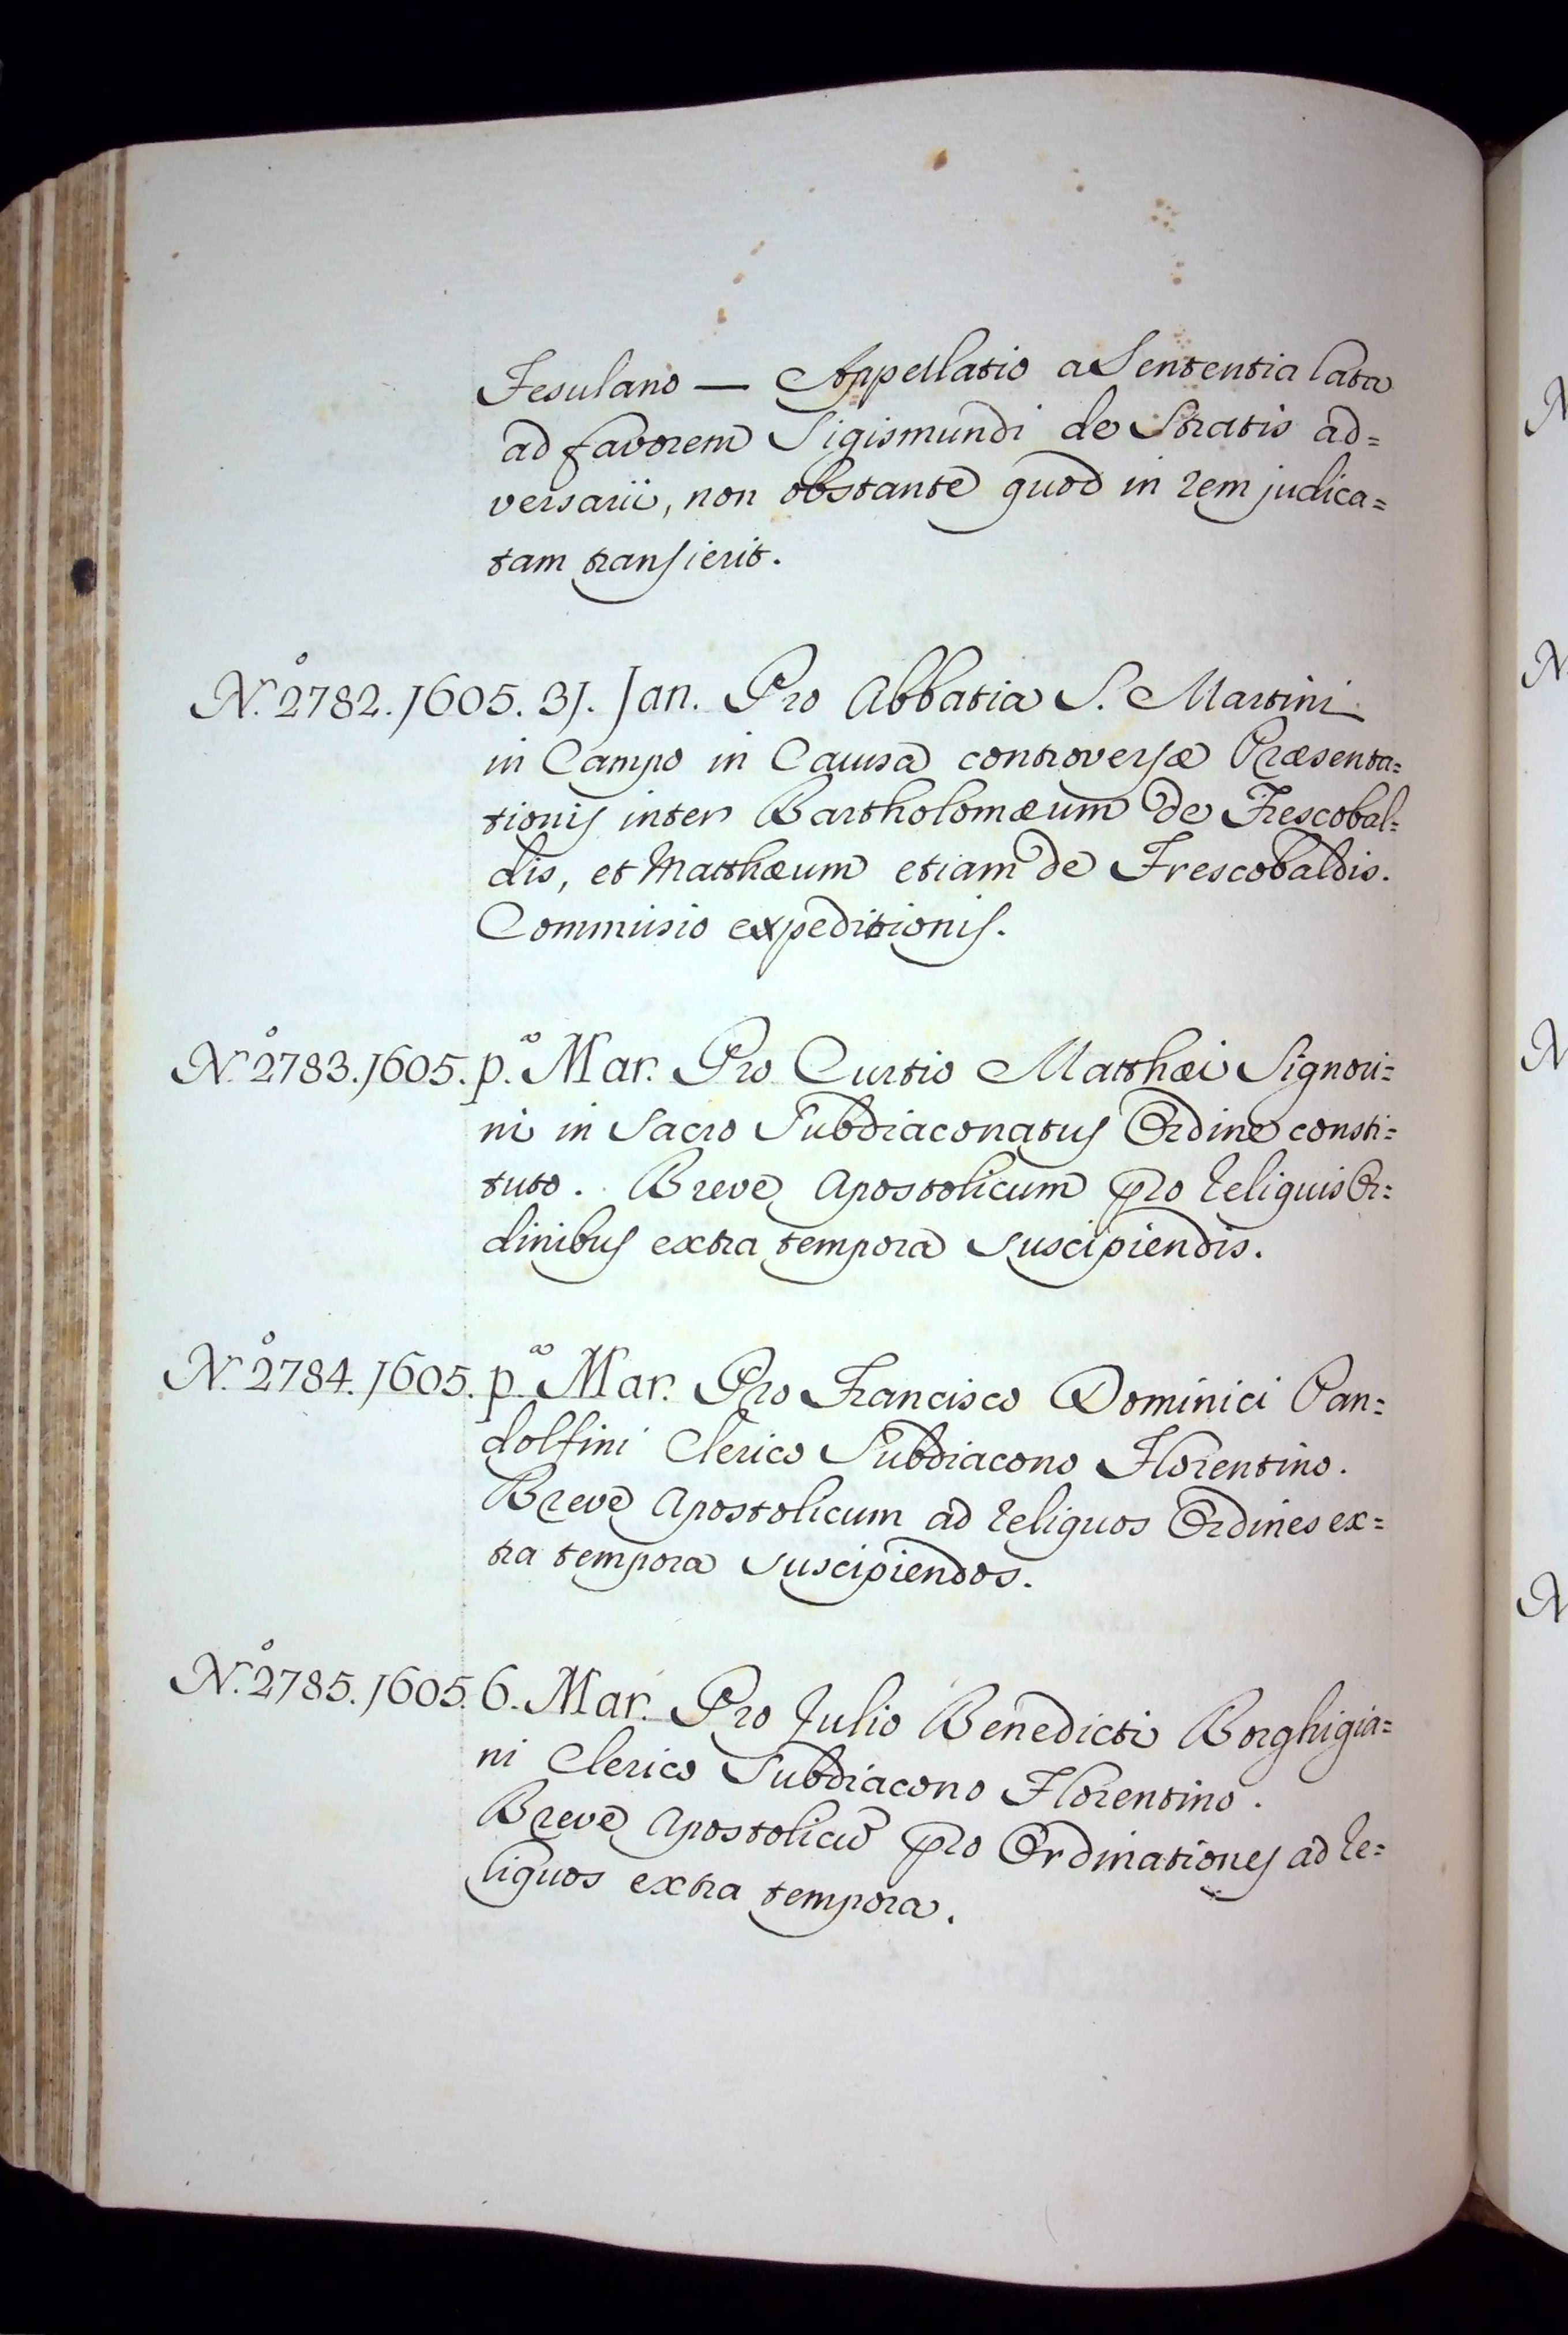 Fesulano — Appellatio a Sententia lata
ad favorem Sigismundi de Stratis ad=
versarii, non obstante quod in rem judica=
tam transierit.
N.º 2782. 1605. 31. Jan. Pro Abbatia S. Martini
in Campo in Causa controversæ Præsenta=
tionis inter Bartholomæum de Frescobal=
dis, et Matthæum etiam de Frescobaldis.
Commissio expeditionis.
N.º 2783. 1605. p.º Mar. Pro Curtio Matthæi Signori=
ni in Sacro Subdiaconatus Ordine consti=
tuto. Breve Apostolicum pro reliquis Or=
dinibus extra tempora suscipiendis.
N.º 2784. 1605. p.º Mar. Pro Francisco Dominici Pan=
dolfini Clerico Subdiacono Florentino.
Breve Apostolicum ad reliquos Ordines ex=
tra tempora suscipiendos.
N.º 2785. 1605. 6. Mar. Pro Julio Benedicti Borghigia=
ni Clerico Subdiacono Florentino.
Breve Apostolicũ pro Ordinationes ad re=
liquos extra tempora.
N
N
N
N